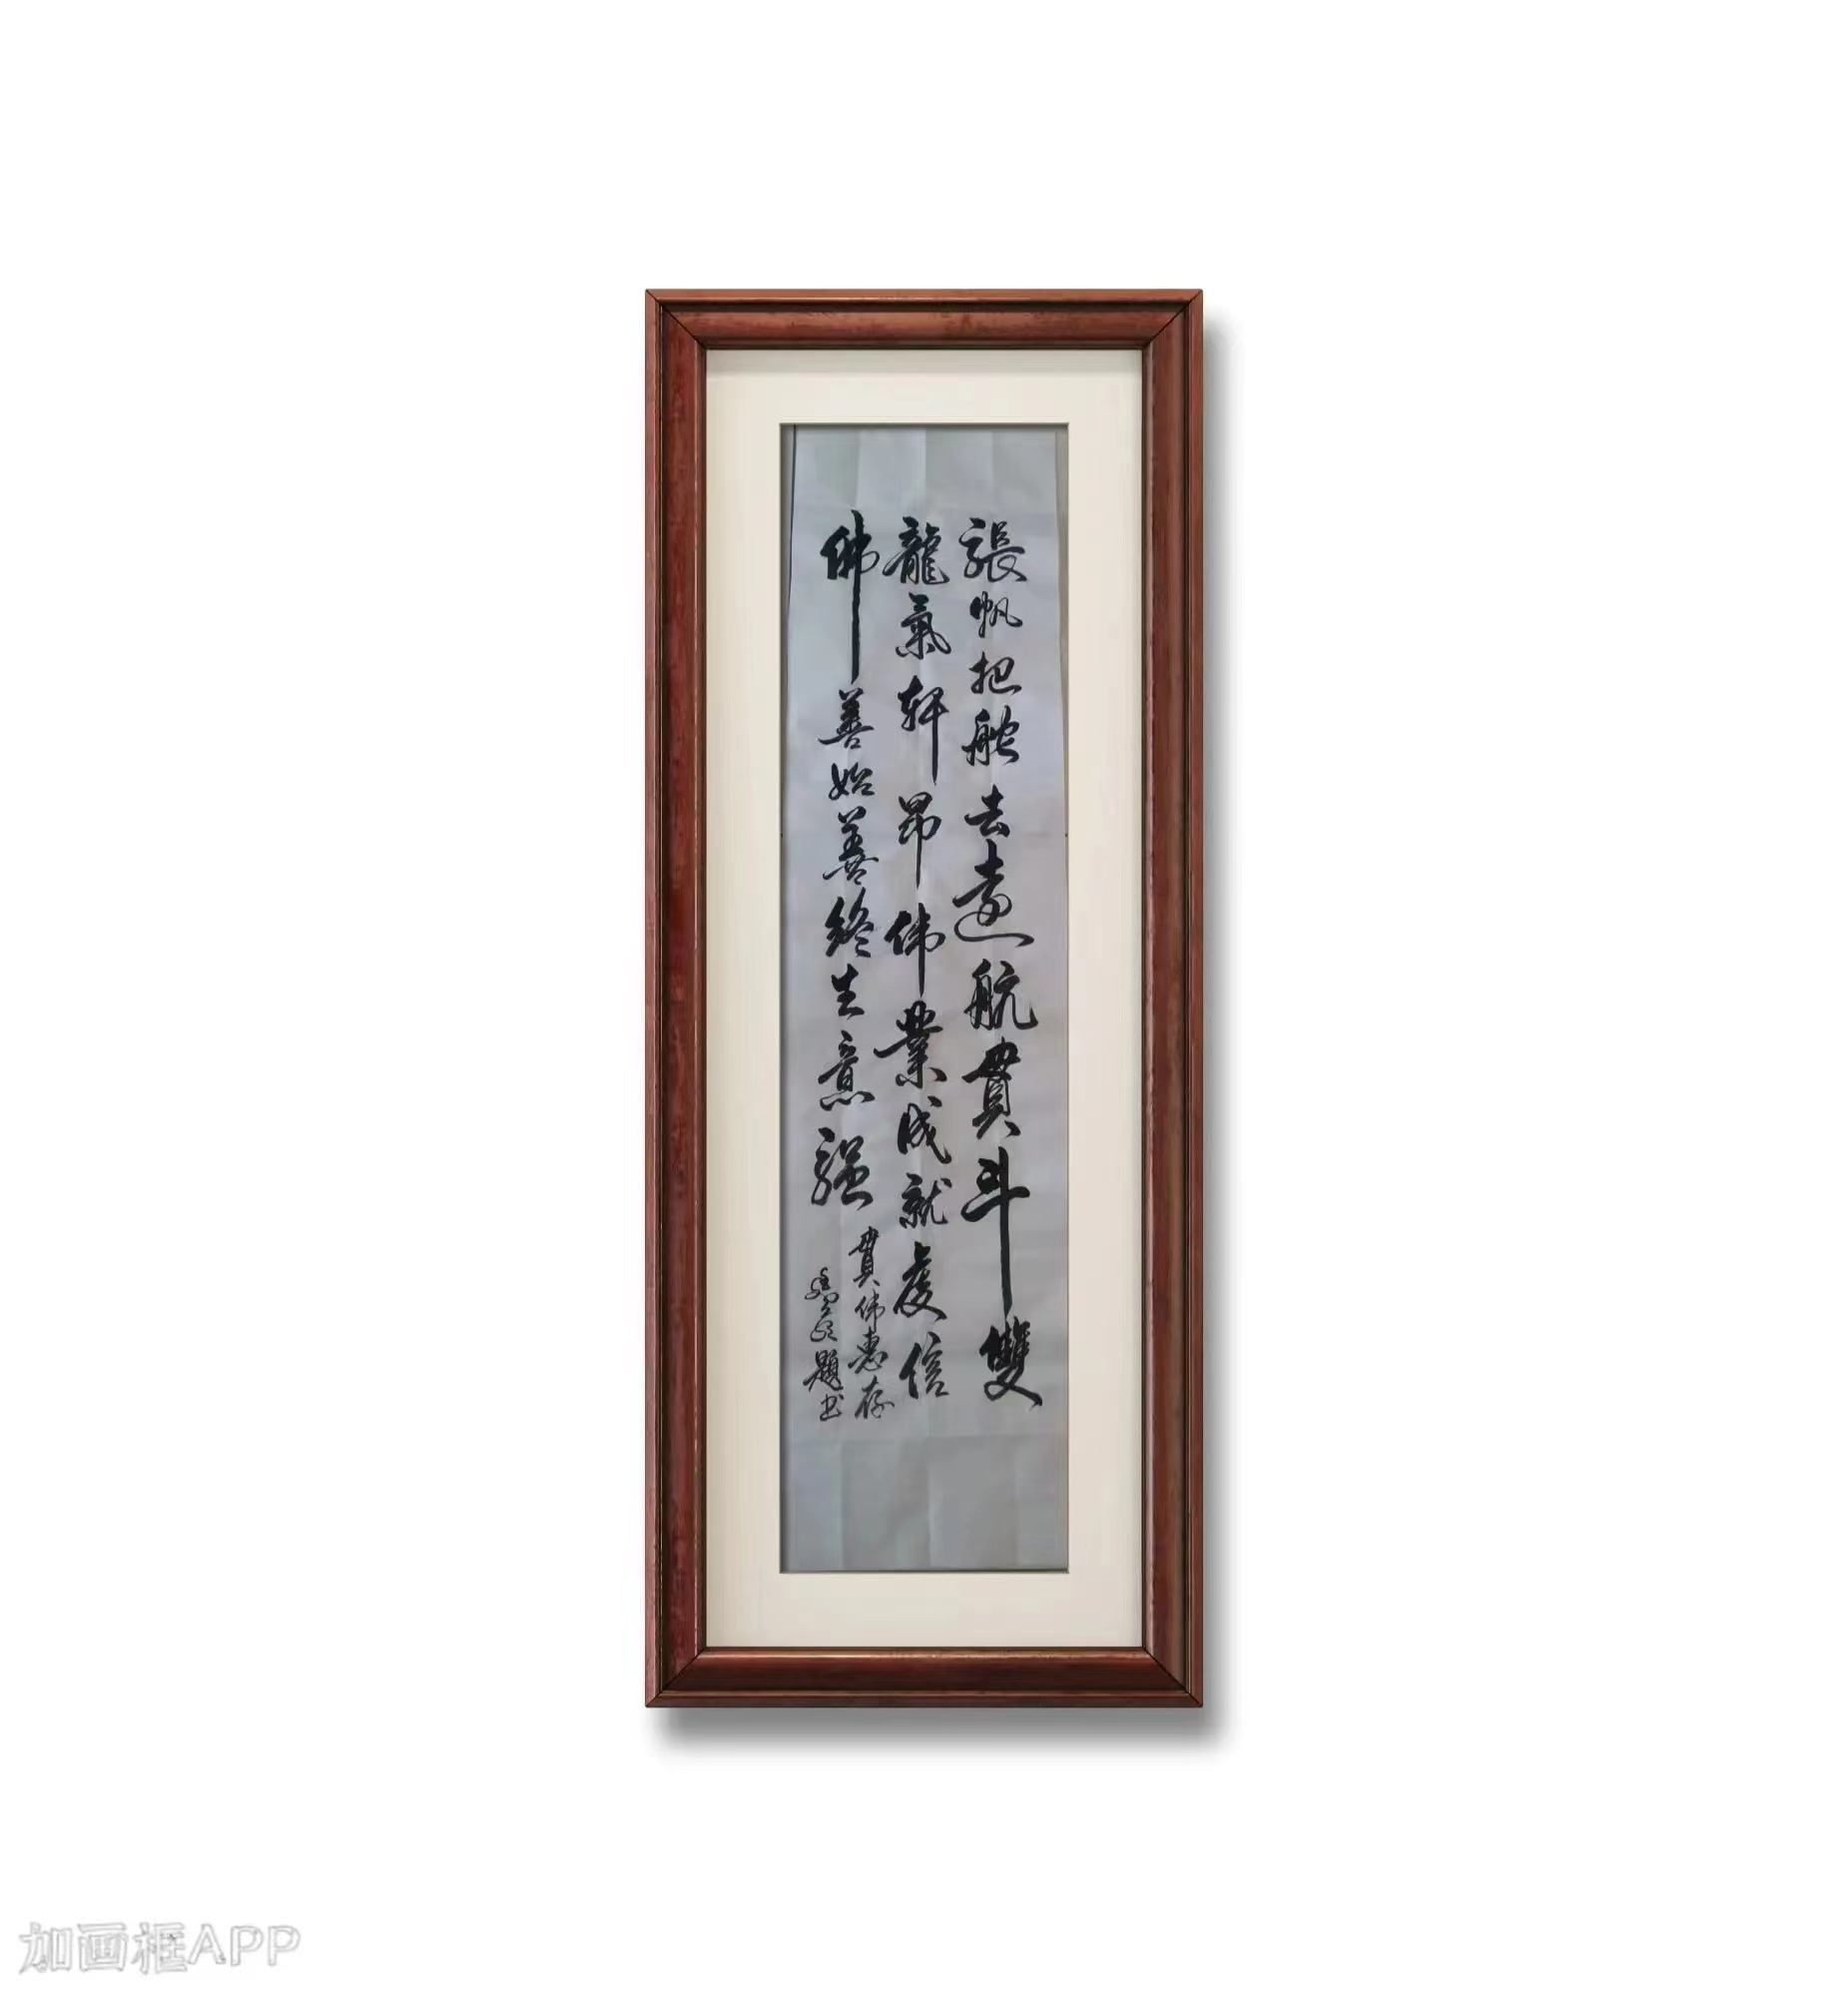 張帆把舵去遠航貫斗雙
龍氣軒昂偉業成就虔信
佛善始善終生意强
貫偉惠存
題书
加画框APP